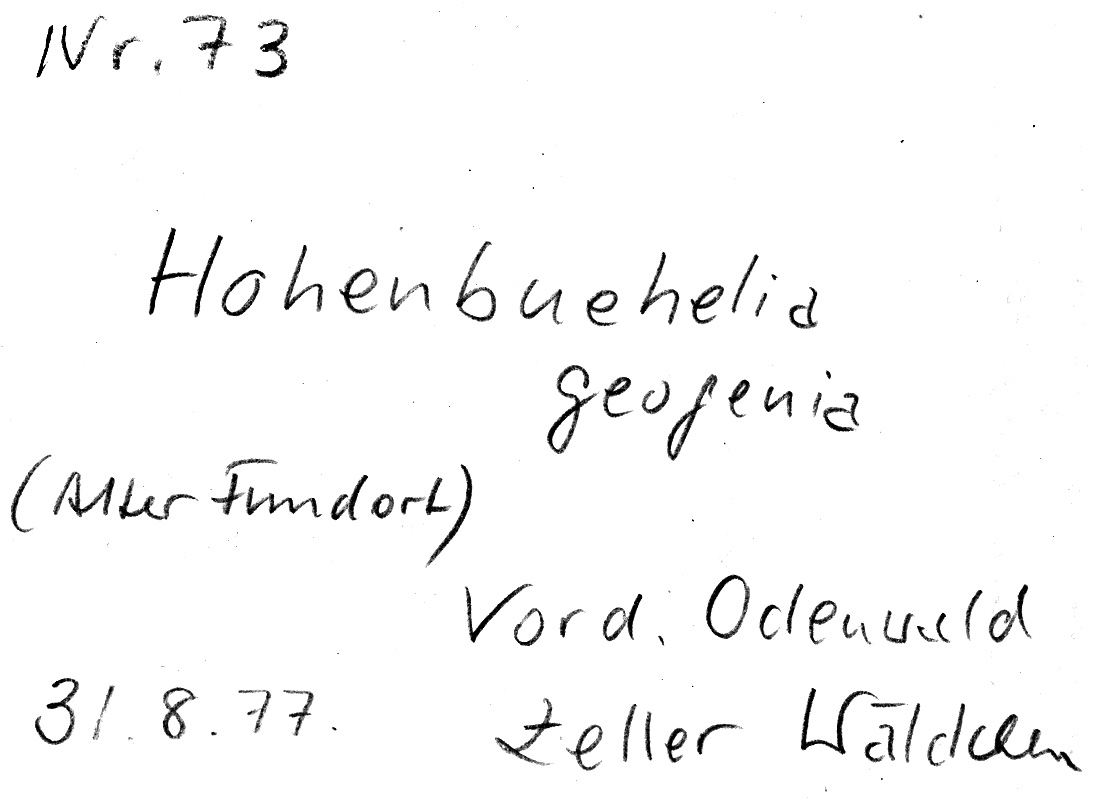 Nr. 73
Hohenbuehelia
geogenia
(Alter Fundort)
Vord. Odenwald
31.8.77.
Zeller Wäldchen